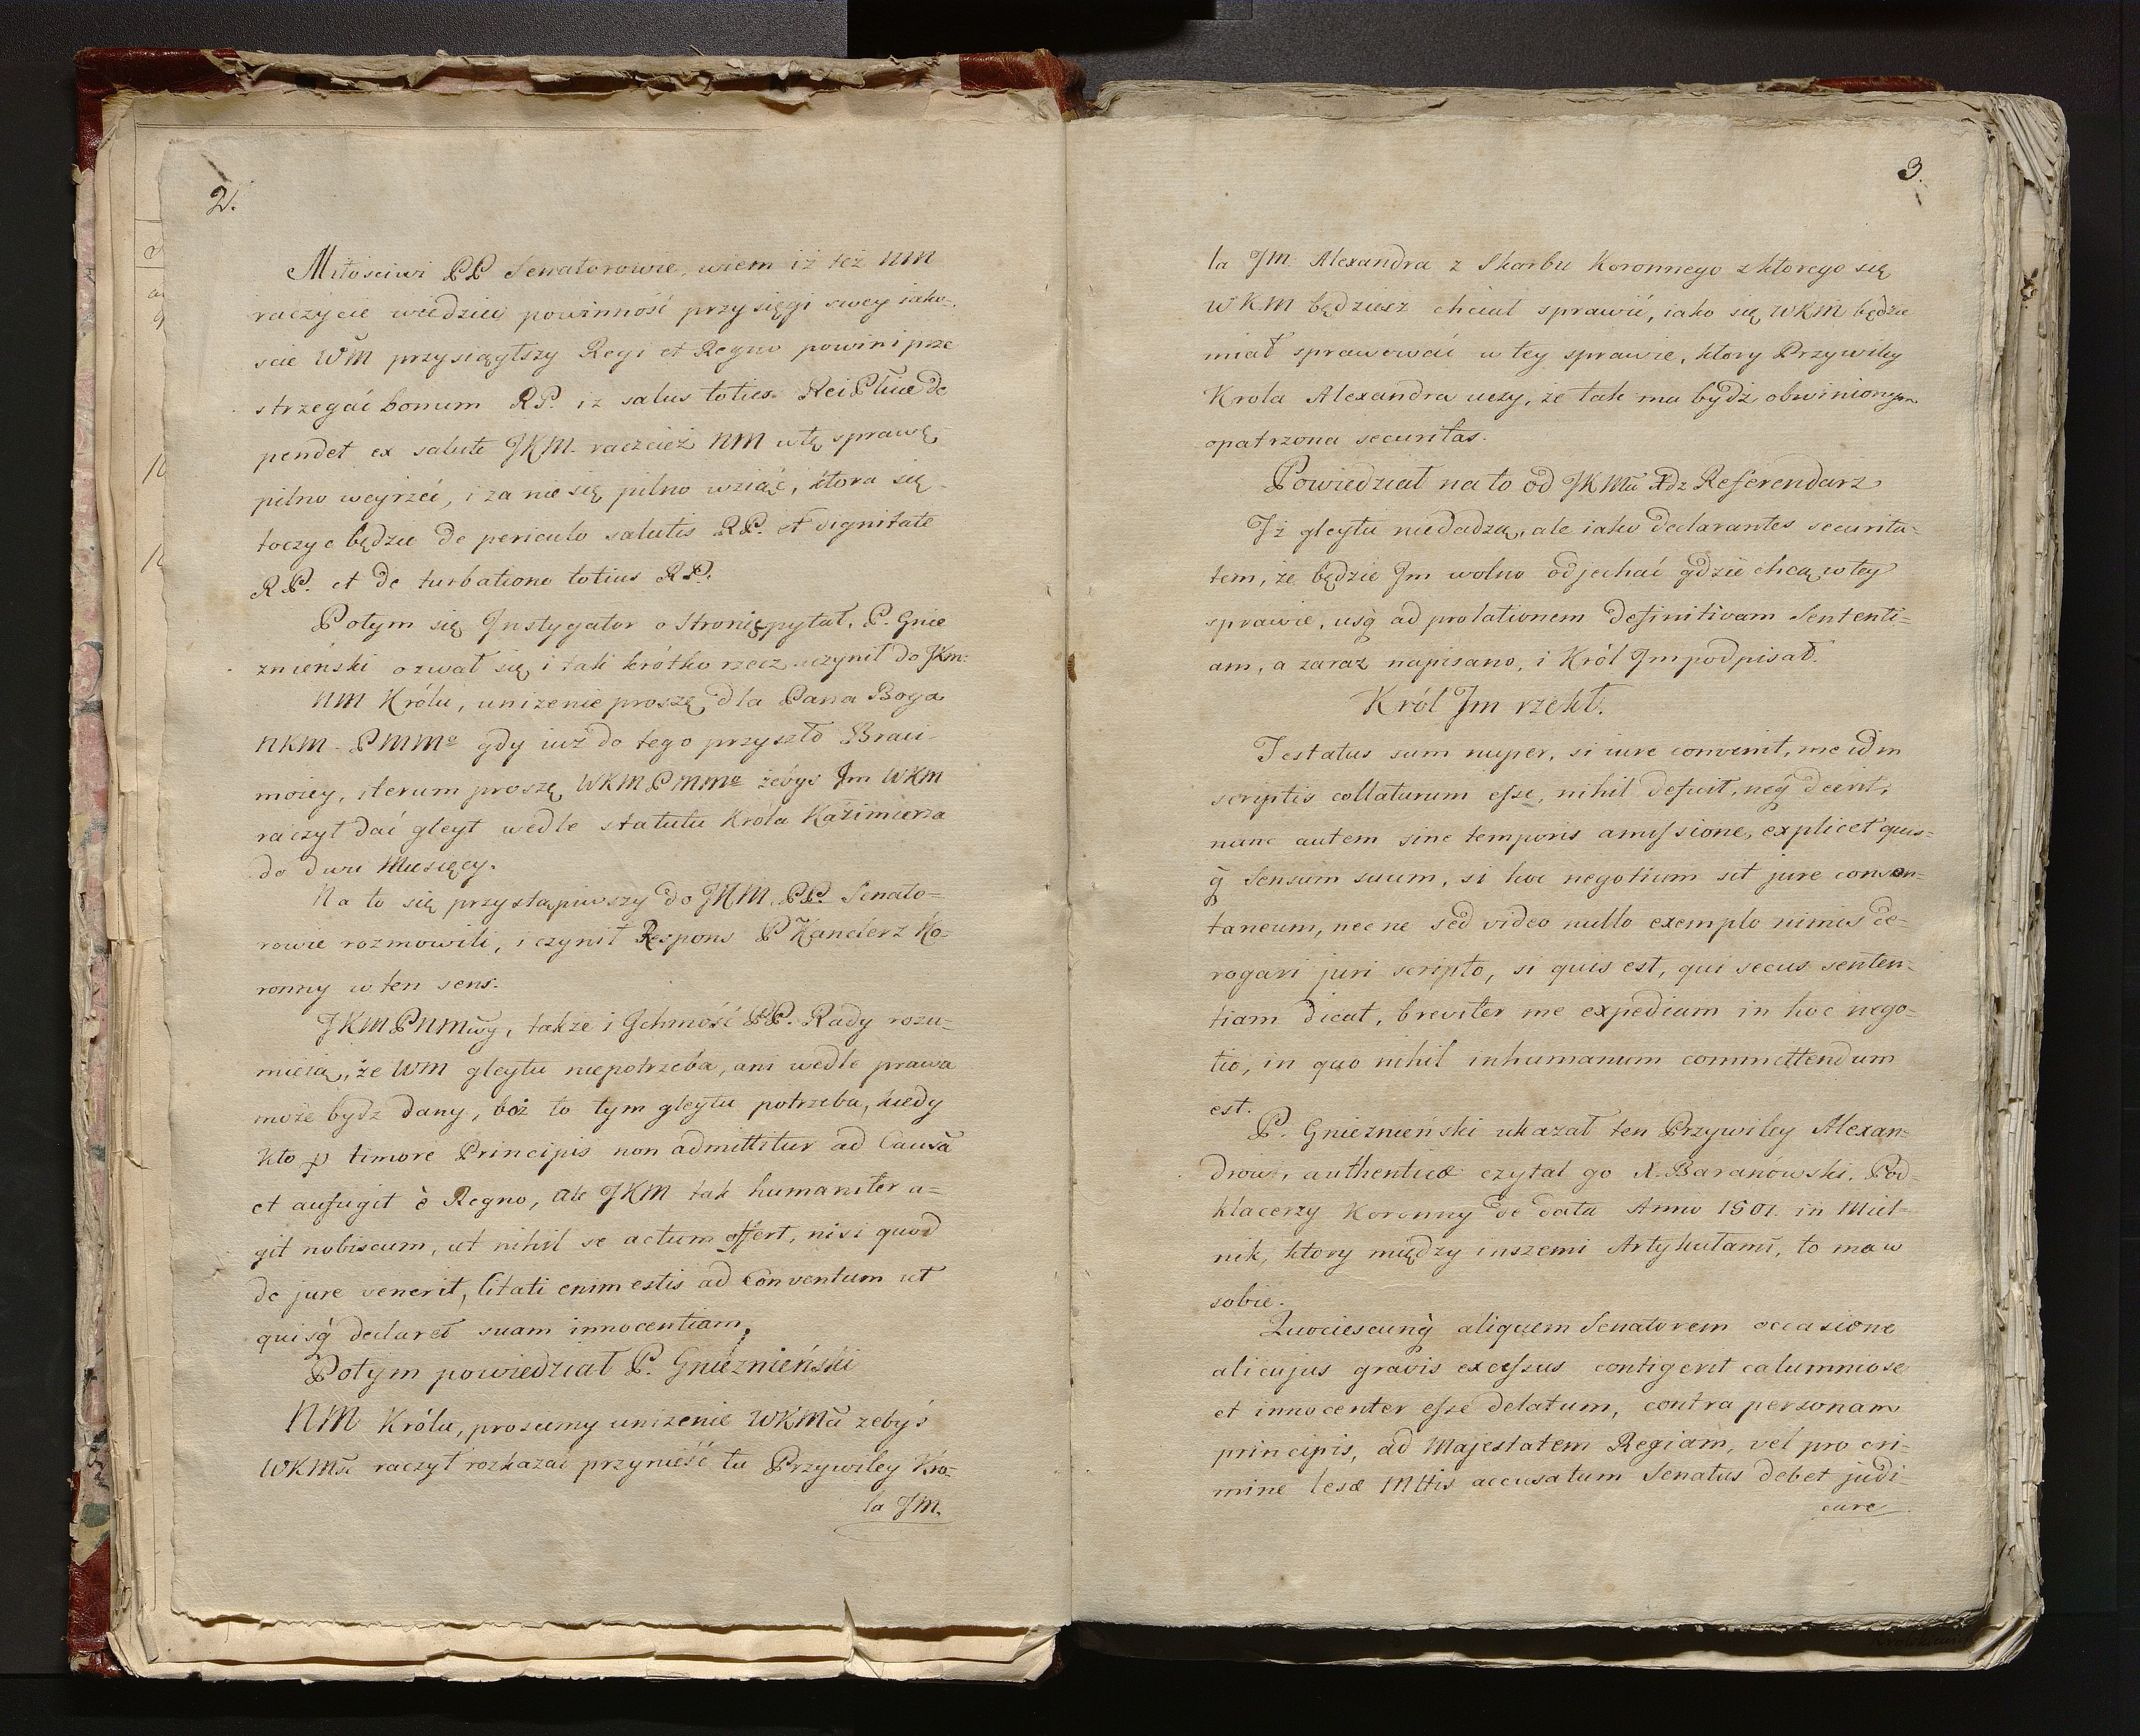 2.
Miłościwi PP Senatorowie, wiem iż też NM
raczycie wiedzieć powinność przysięgi swey iako-
scie WM przysiągłszy Regi et Regno powini prze
strzegać bonum RP. iz salus totius Rei Plicæ de
pendet ex salute JKM. raczcież NM w tę sprawę
pilno weyrzeć, i za nie się pilno wziąć, ktora się
toczyc będzie de periculo salutis RP. et dignitate
RP. et de turbatione totius RP.
Potym się Instygator o Stronię pytał, P. Gnie
znieński ozwał się i tak krótko rzecz uczynił do JKm:
NM Królu, unizenie proszę dla Pana Boga
NKM PMMo gdy iuż do tego przyszło Braci
moiey, iterum proszę WKM PMMo żebys Jm WKM
raczył dać gleyt wedle statutu Króla Kazimierza
do dwu Miesięcy.
Na to się przystąpiwszy do JKM. PP. Senato=
rowie rozmowili, i czynił Respons P Kanclerz Ko-
ronny w ten sens.
JKM PNMwy, także i Ichmość PP. Rady rozu-
mieią, że WM gleytu niepotrzeba, ani wedle prawa
może bydz dany, boż to tym gleytu potrzeba, kiedy
kto p timore Principis non admittitur ad Causā
et aufugit è Regno, ale JKM tak humaniter a=
git nobiscum, ut nihil se actum offert, nisi quod
de jure venerit, Citati enim estis ad Conventum ut
quisq̃ declaret suam innocentiam.
Potym powiedział P. Gnieznieński
NM Królu, prosiemy unizenie WKMci zebyś
WKMść raczył rozkazać przynieść tu Przywiley Kro-
la JM.
3.
la JM Alexandra z Skarbu Koronnego z ktorego się
WKM będziesz chciał sprawić, iako się WKM będzie
miał sprawować w tey sprawie, ktory Przywiley
Krola Alexandra uczy, że tak ma bydź obwinionym
opatrzona securitas.
Powiedział na to od JKMci Xdz Referendarz
Iż gleytu niedadzą, ale iako declarantes securita-
tem, że będzie Jm wolno odjechać gdzie chcą w tey
sprawie, usq̃ ad prolationem definitivam Sententi=
am, a zaraz napisano, i Król Jm podpisał.
Król Jm rzekł.
Testatus sum nuper, si iure convenit, me idm
scriptis collaturum esse, nihil deficit, neq̃ deerit,
nunc autem sine temporis amissione, explicet quis=
q̃ Sensum suum, si hoc negotium sit jure consen-
taneum, nec ne sed video nullo exemplo nimis de-
rogari juri scripto, si quis est, qui secus senten-
tiam dicat, breviter me expediam in hoc nego=
tio, in quo nihil inhumanum committendum
est.
P. Gnieznieński ukazał ten Przywiley Alexan-
drow, authenticæ czytał go X. Baranówski, Pod-
klacerzy Koronny de data Anno 1501. in Miel-
nik, ktory między inszemi Artykułami, to ma w
sobie.
Quociescunq̃ aliquem Senatorem occasione
alicujus gravis excessus contigerit calumniose
et innocenter esse delatum, contra personam
principis, ad Majestatem Regiam, vel pro cri-
mine lesæ Mttis accusatum Senatus debet judi
care